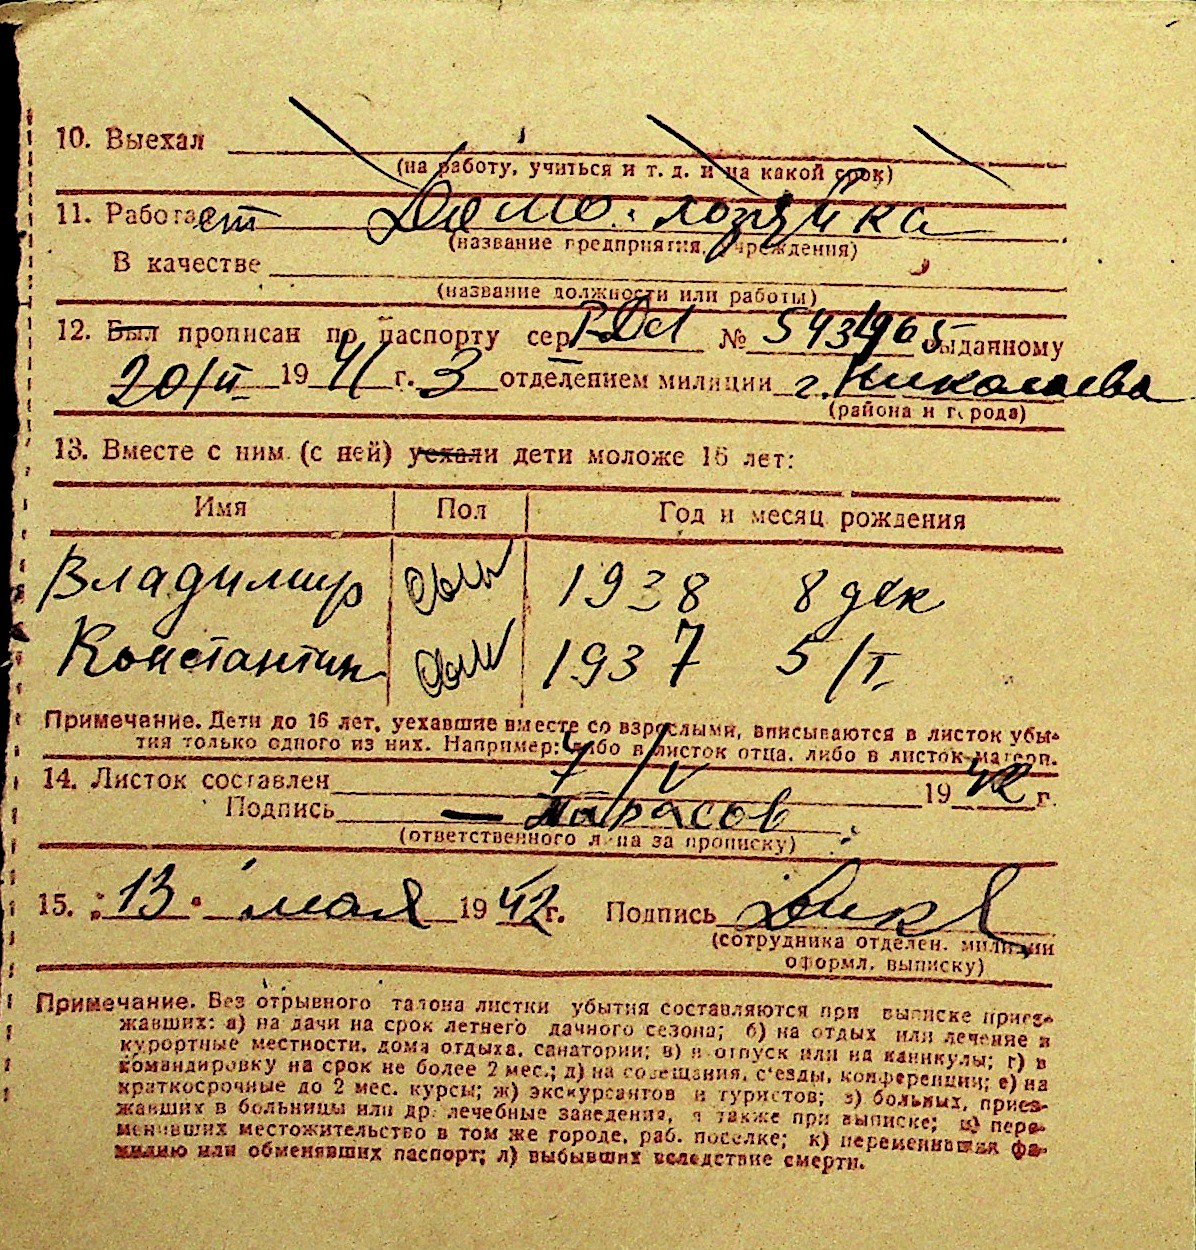 10. Выехал
(на работу, учиться и т. д. и на какой срок)
11. Работает Домо.хозяйка
(название предприятия, учреждения)
В качестве
(название должности или работы)
12. Был прописан по паспорту сер. № 543196 выданному
20/II 1941 г. 3 отделением милиции г. Николаева
(района и города)
13. Вместе с ним (с ней) уехали дети моложе 16 лет:
Имя Пол Год и месяц рождения
Владимир сын 1938 8 дек
Константин сын 1937 5/I
Примечание. Дети до 16 лет, уехавшие вместе со взрослыми, вписываются в листок убы-
тия только одного из них. Например: либо в листок отца, либо в листок матери.
14. Листок составлен 7/V 1942 г.
Подпись — Тарасов
(ответственного лица за прописку)
15. „13“ мая 1942 г. Подпись
(сотрудника отделен. милиции
оформл. выписку)
Примечание. Без отрывного талона листки убытия составляются при выписке приез-
жавших: а) на дачи на срок летнего дачного сезона; б) на отдых или лечение в
курортные местности, дома отдыха, санатории; в) в отпуск или на каникулы; г) в
командировку на срок не более 2 мес.; д) на совещания, с'езды, конференции; е) на
краткосрочные до 2 мес. курсы; ж) экскурсантов и туристов; з) больных, приез-
жавших в больницы или др. лечебные заведения, а также при выписке; и) пере-
менивших местожительство в том же городе, раб. поселке; к) переменивших фа-
милию или обменявших паспорт; л) выбывших вследствие смерти.